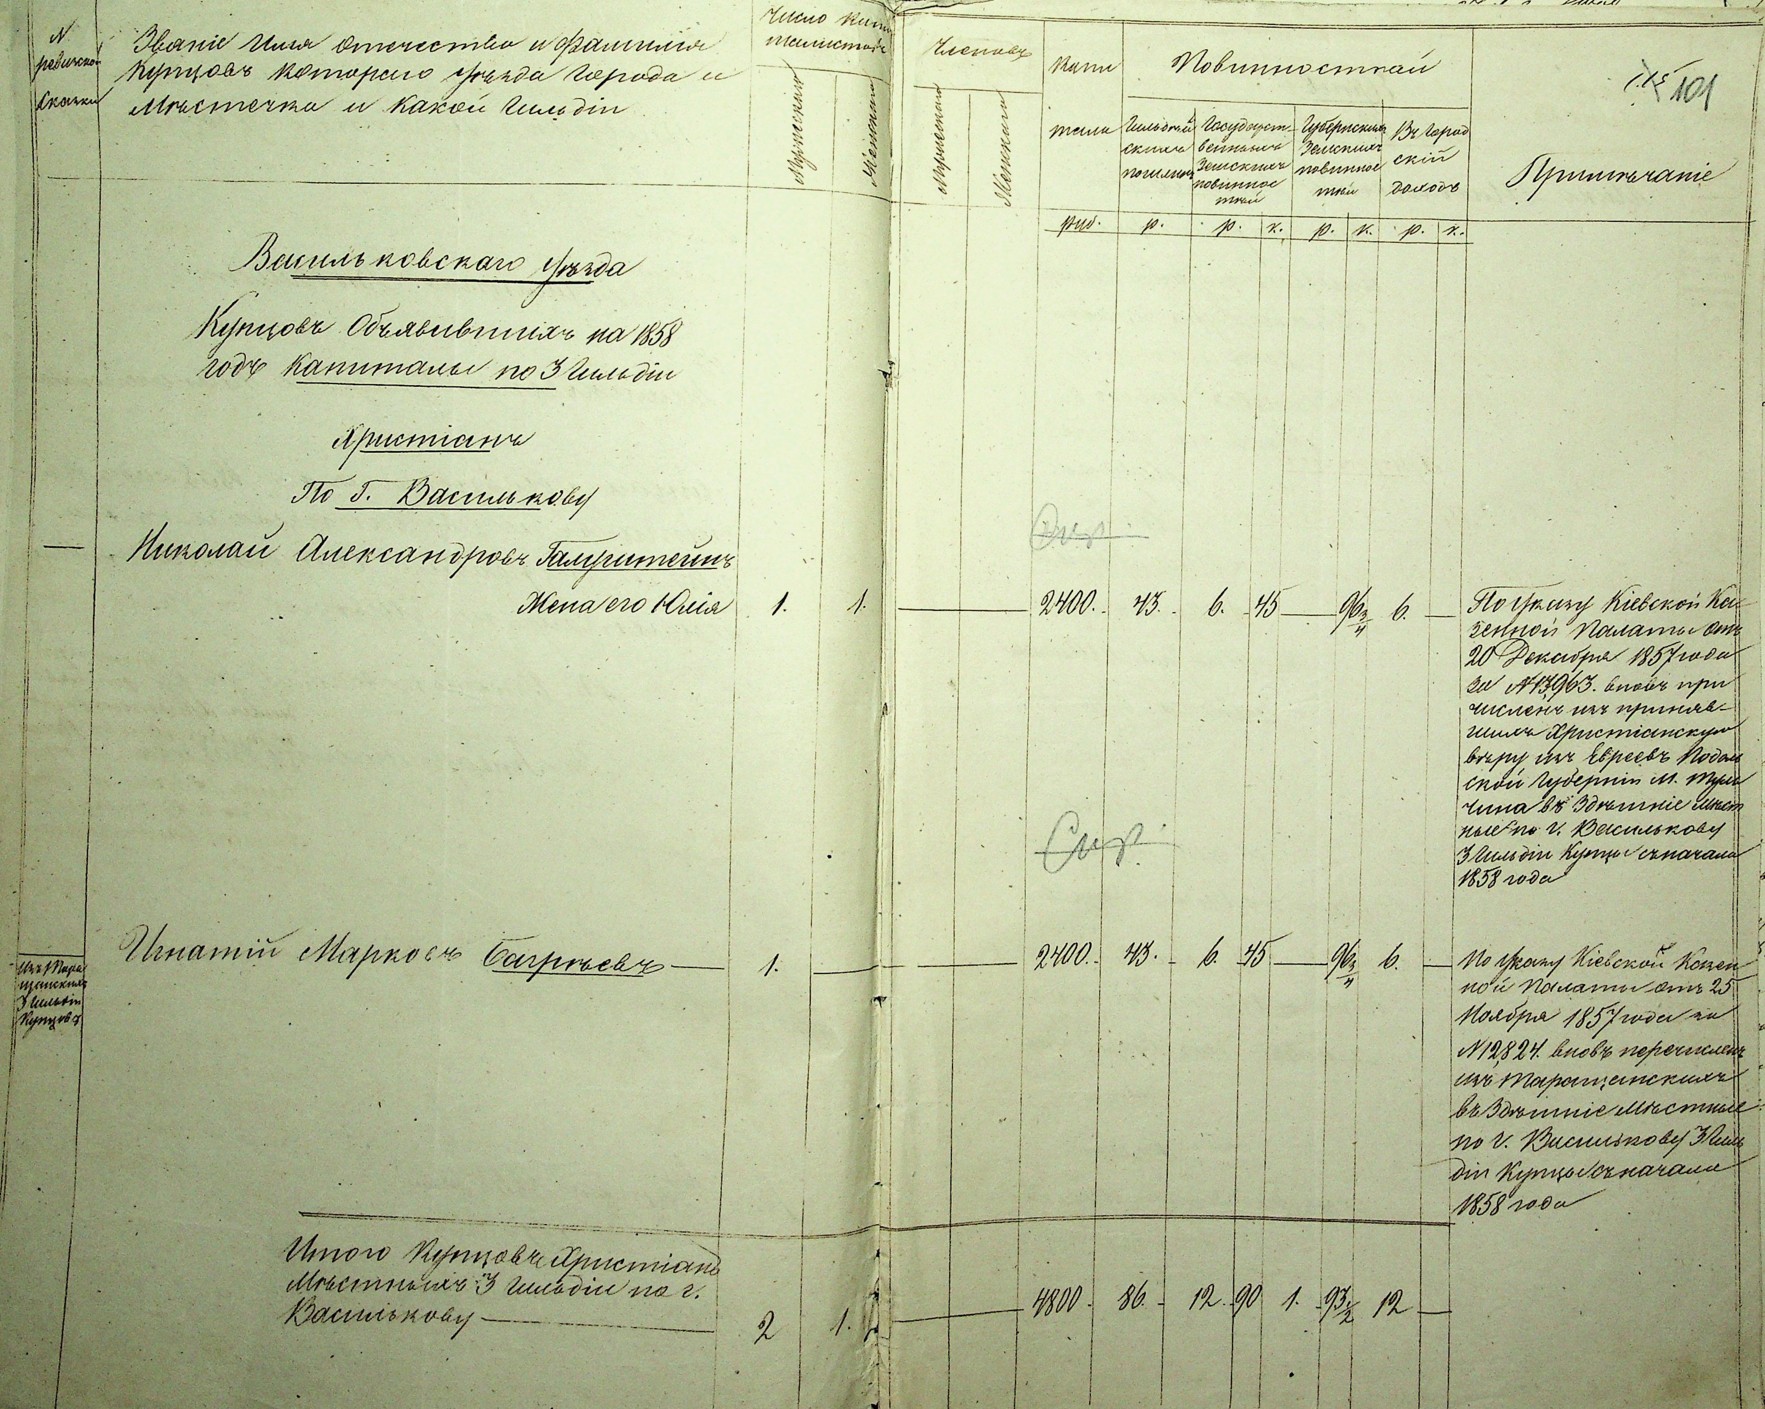 N
ревизской
сказки
Званіе Имя отечество и фамилія
Купцовъ котораго уѣзда города и
мѣстечка и какой Гильдіи
Число капи
талистовъ
Мужескаго
Женскаго
Членовъ
Мужескаго
Женскаго
Капи
тала
руб.
Повинностей
Гильдей
скихъ
пошлинъ
р.
Государст-
венныхъ
Земскихъ
повиннос
тей
р. к.
Губернскихъ
Земскихъ
повиннос
тей
р. к.
Въ Город
скій
доходъ
р. к.
101
Примѣчаніе
Васильковскаго уѣзда
Купцовъ Объявившихъ на 1858
годъ капиталы по 3 Гильдіи
Христіанъ
По Г. Василькову
Николай Александровъ Гамерштейнъ
Жена его Юлія 1. 1. 2400. 43. 6. 45 96 3/4 6.
По Указу Кіевской Ка-
зенной Палаты отъ
20 Декабря 1857 года
за N 13,963. вновь при
численъ изъ приняв-
шихъ Христіанскую
вѣру изъ Евреевъ Подоль
ской Губерніи м. Туль
чина въ Здѣшніе мѣст
ные по г. Василькову
3 Гильдіи Купцы съ начала
1858 года
Изъ Тара
щанскихъ
3 Гильдіи
Купцовъ
Игнатій Марковъ Багрѣевъ 1. 2400. 43. 6. 45 96 3/4 6.
По Указу Кіевской Казен
ной Палаты отъ 25
Ноября 1857 года за
N 12,824. вновь перечисленъ
изъ Таращанскихъ
въ Здѣшніе мѣстные
по г. Василькову 3 Гиль
діи Купцы съ начала
1858 года
Итого Купцовъ Христіанъ
Мѣстныхъ 3 Гильдіи по г.
Василькову 2 1. 4800. 86. 12. 90 1. 93 1/2 12